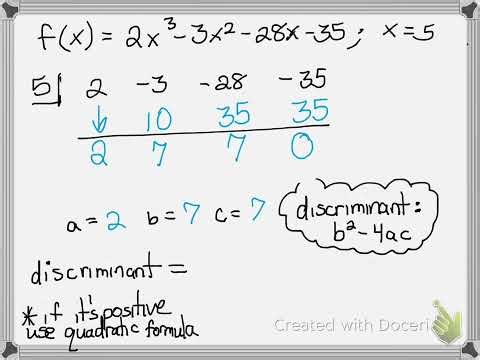 f(x) = 2x³ - 3x² - 28x - 35; x = 5
5| 2 -3 -28 -35
↓ 10 35 35
2 7 7 0
a = 2 b = 7 c = 7
discriminant:
b² - 4ac
discriminant =
* if it's positive
use quadratic formula
Created with Doceri